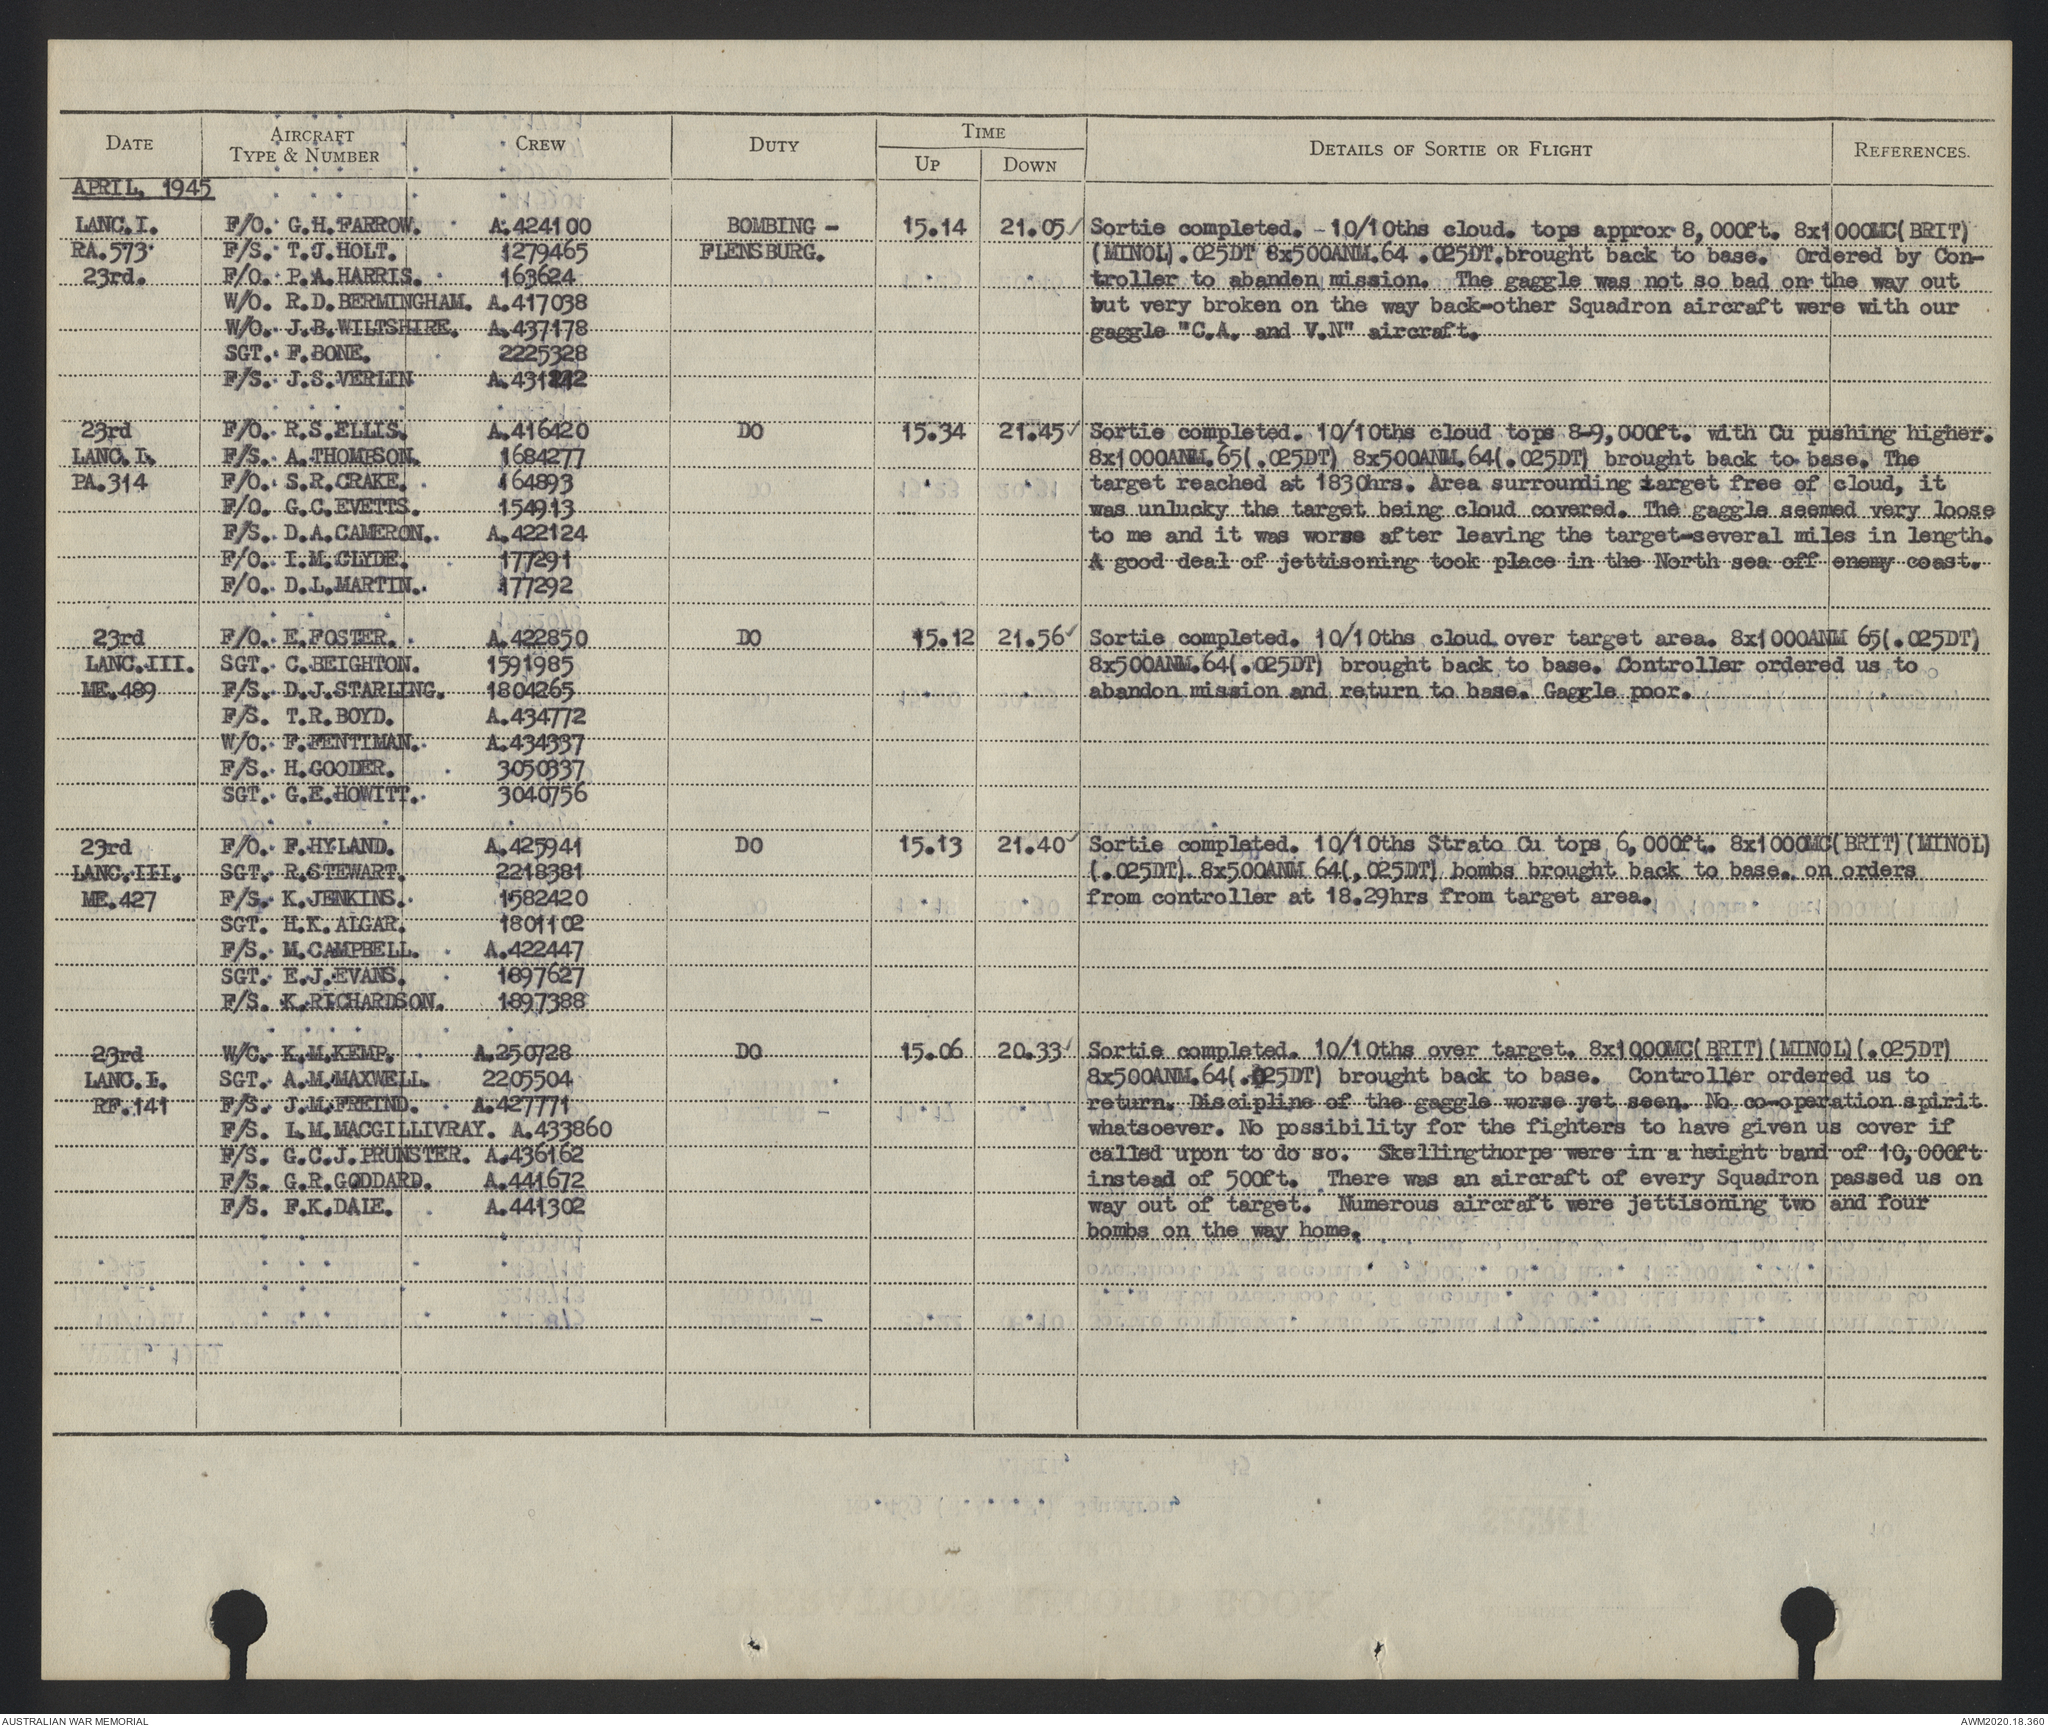 DATE AIRCRAFT TYPE & NUMBER CREW DUTY TIME UP DOWN DETAILS OF SORTIE OR FLIGHT REFERENCES.
APRIL, 1945
LANC.I. F/O. G.H.FARROW. A.424100 BOMBING - 15.14 21.05 Sortie completed. - 10/10ths cloud. tops approx 8,000ft. 8x1000MC(BRIT)
RA.573 F/S. T.J.HOLT. 1279465 FLENSBURG. (MINOL).025DT 8x500ANM.64 .025DT.brought back to base. Ordered by Con-
23rd. F/O. P.A.HARRIS. 163624 troller to abanden mission. The gaggle was not so bad on the way out
W/O. R.D.BERMINGHAM. A.417038 but very broken on the way back-other Squadron aircraft were with our
W/O. J.B.WILTSHIRE. A.437178 gaggle "C.A. and V.N" aircraft.
SGT. F.BONE. 2225328
F/S. J.S.VERLIN
23rd F/O. R.S.ELLIS. A.416420 DO 15.34 21.45 Sortie completed. 10/10ths cloud tops 8-9,000ft. with Cu pushing higher.
LANC.I. F/S. A.THOMPSON. 1684277 8x1000ANM.65(.025DT) 8x500ANM.64(.025DT) brought back to base. The
PA.314 F/O. S.R.CRAKE. 164893 target reached at 1830hrs. Area surrounding target free of cloud, it
F/O. G.C.EVETTS. 154913 was unlucky the target being cloud covered. The gaggle seemed very loose
F/S. D.A.CAMERON. A.422124 to me and it was worse after leaving the target-several miles in length.
F/O. I.M.CLYDE. 177291 A good deal of jettisoning took place in the North sea off enemy coast.
F/O. D.L.MARTIN. 177292
23rd F/O. E.FOSTER. A.422850 DO 15.12 21.56 Sortie completed. 10/10ths cloud over target area. 8x1000ANM 65(.025DT)
LANC.III. SGT. C.BEIGHTON. 1591985 8x500ANM.64(.025DT) brought back to base. Controller ordered us to
ME.489 F/S. D.J.STARLING. 1804265 abandon mission and return to base. Gaggle poor.
F/S. T.R.BOYD. A.434772
W/O. F.FENTIMAN. A.434337
F/S. H.GOODER. 3050337
SGT. G.E.HOWITT. 3040756
23rd F/O. F.HYLAND. A.425941 DO 15.13 21.40 Sortie completed. 10/10ths Strato Cu tops 6,000ft. 8x1000MC(BRIT)(MINOL)
LANC.III. SGT. R.STEWART. 2218381 (.025DT) 8x500ANM 64(,025DT) bombs brought back to base. on orders
ME.427 F/S. K.JENKINS. 1582420 from controller at 18.29hrs from target area.
SGT. H.K.ALGAR. 1801102
F/S. M.CAMPBELL. A.422447
SGT. E.J.EVANS. 1897627
F/S. K.RICHARDSON. 1897388
23rd W/C. K.M.KEMP. A.250728 DO 15.06 20.33 Sortie completed. 10/10ths over target. 8x1000MC(BRIT)(MINOL)(.025DT)
LANC.I. SGT. A.M.MAXWELL. 2205504 8x500ANM.64(.025DT) brought back to base. Controller ordered us to
RF.141 F/S. J.M.FREIND. A.427771 return. Discipline of the gaggle worse yet seen. No co-operation spirit
F/S. L.M.MACGILLIVRAY. A.433860 whatsoever. No possibility for the fighters to have given us cover if
F/S. G.C.J.PRUNSTER. A.436162 called upon to do so. Skellingthorpe were in a height band of 10,000ft
F/S. G.R.GODDARD. A.441672 instead of 500ft. There was an aircraft of every Squadron passed us on
F/S. F.K.DALE. A.441302 way out of target. Numerous aircraft were jettisoning two and four
bombs on the way home.
AUSTRALIAN WAR MEMORIAL AWM2020.18.360